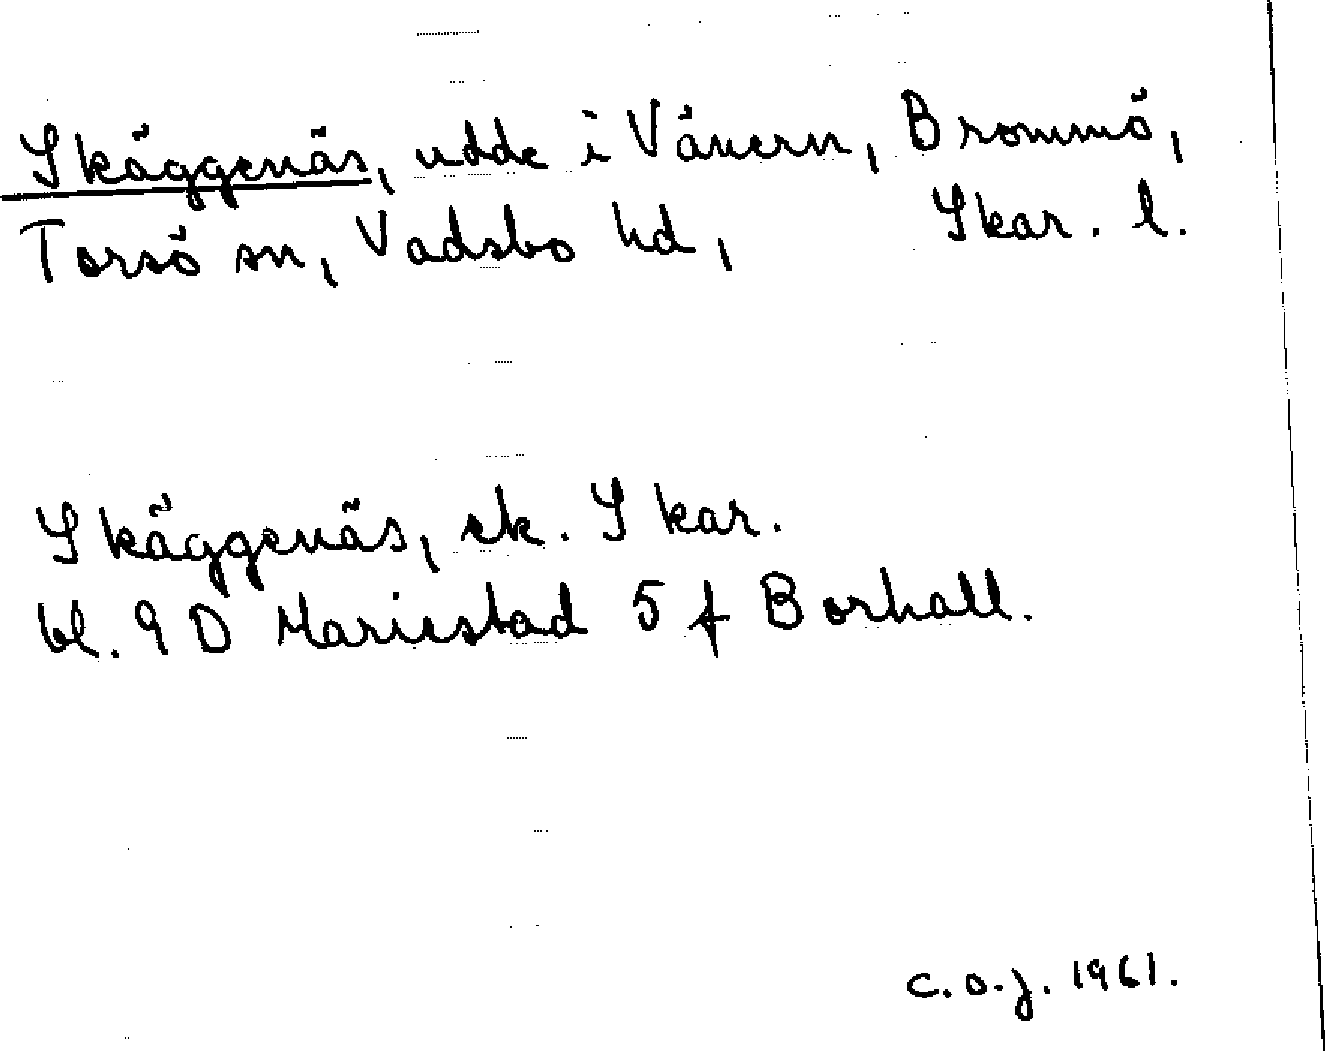 Skäggenäs, udde i Vänern, Brommö,
Torsö sn, Vadsbo hd, Skar. l.
Skäggenäs, ek. Skar.
bl. 9 D Mariestad 5 f Borhall.
C.O.J. 1961.